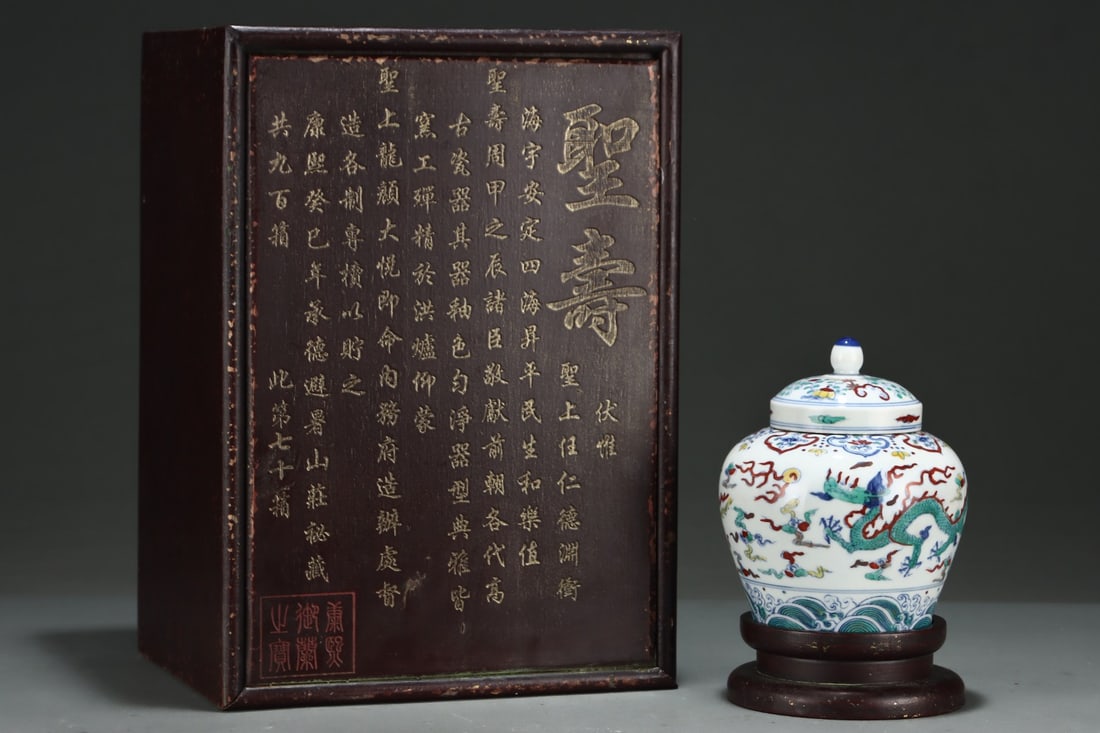 聖壽
伏惟
聖上任仁德淵衡
海宇安定四海昇平民生和樂值
聖壽周甲之辰諸臣敬獻前朝各代高
古瓷器其器釉色勻淨器型典雅皆
窯工殫精於洪爐仰蒙
聖上龍顏大悅即命內務府造辦處督
造各制專櫝以貯之
康熙癸巳年承德避暑山莊祕藏
共九百櫝 此第七十櫝
康熙
御
之寶